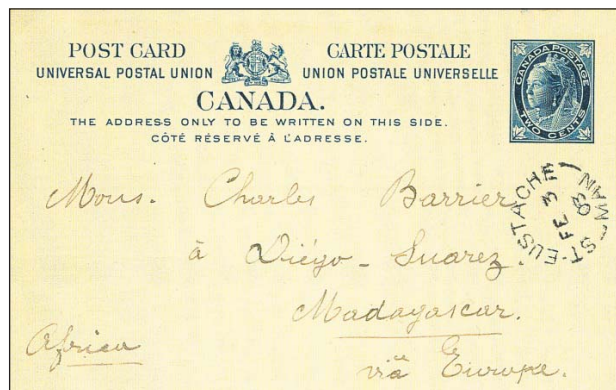 POST CARD CARTE POSTALE
UNIVERSAL POSTAL UNION UNION POSTALE UNIVERSELLE
CANADA.
THE ADDRESS ONLY TO BE WRITTEN ON THIS SIDE.
CÔTÉ RÉSERVÉ À L'ADRESSE.
CANADA POSTAGE
TWO CENTS
ST-EUSTACHE
FE 3
03
MAN
Mons. Charles Barrier
à Diégo-Suarez
Madagascar.
Africa
viâ Europe.